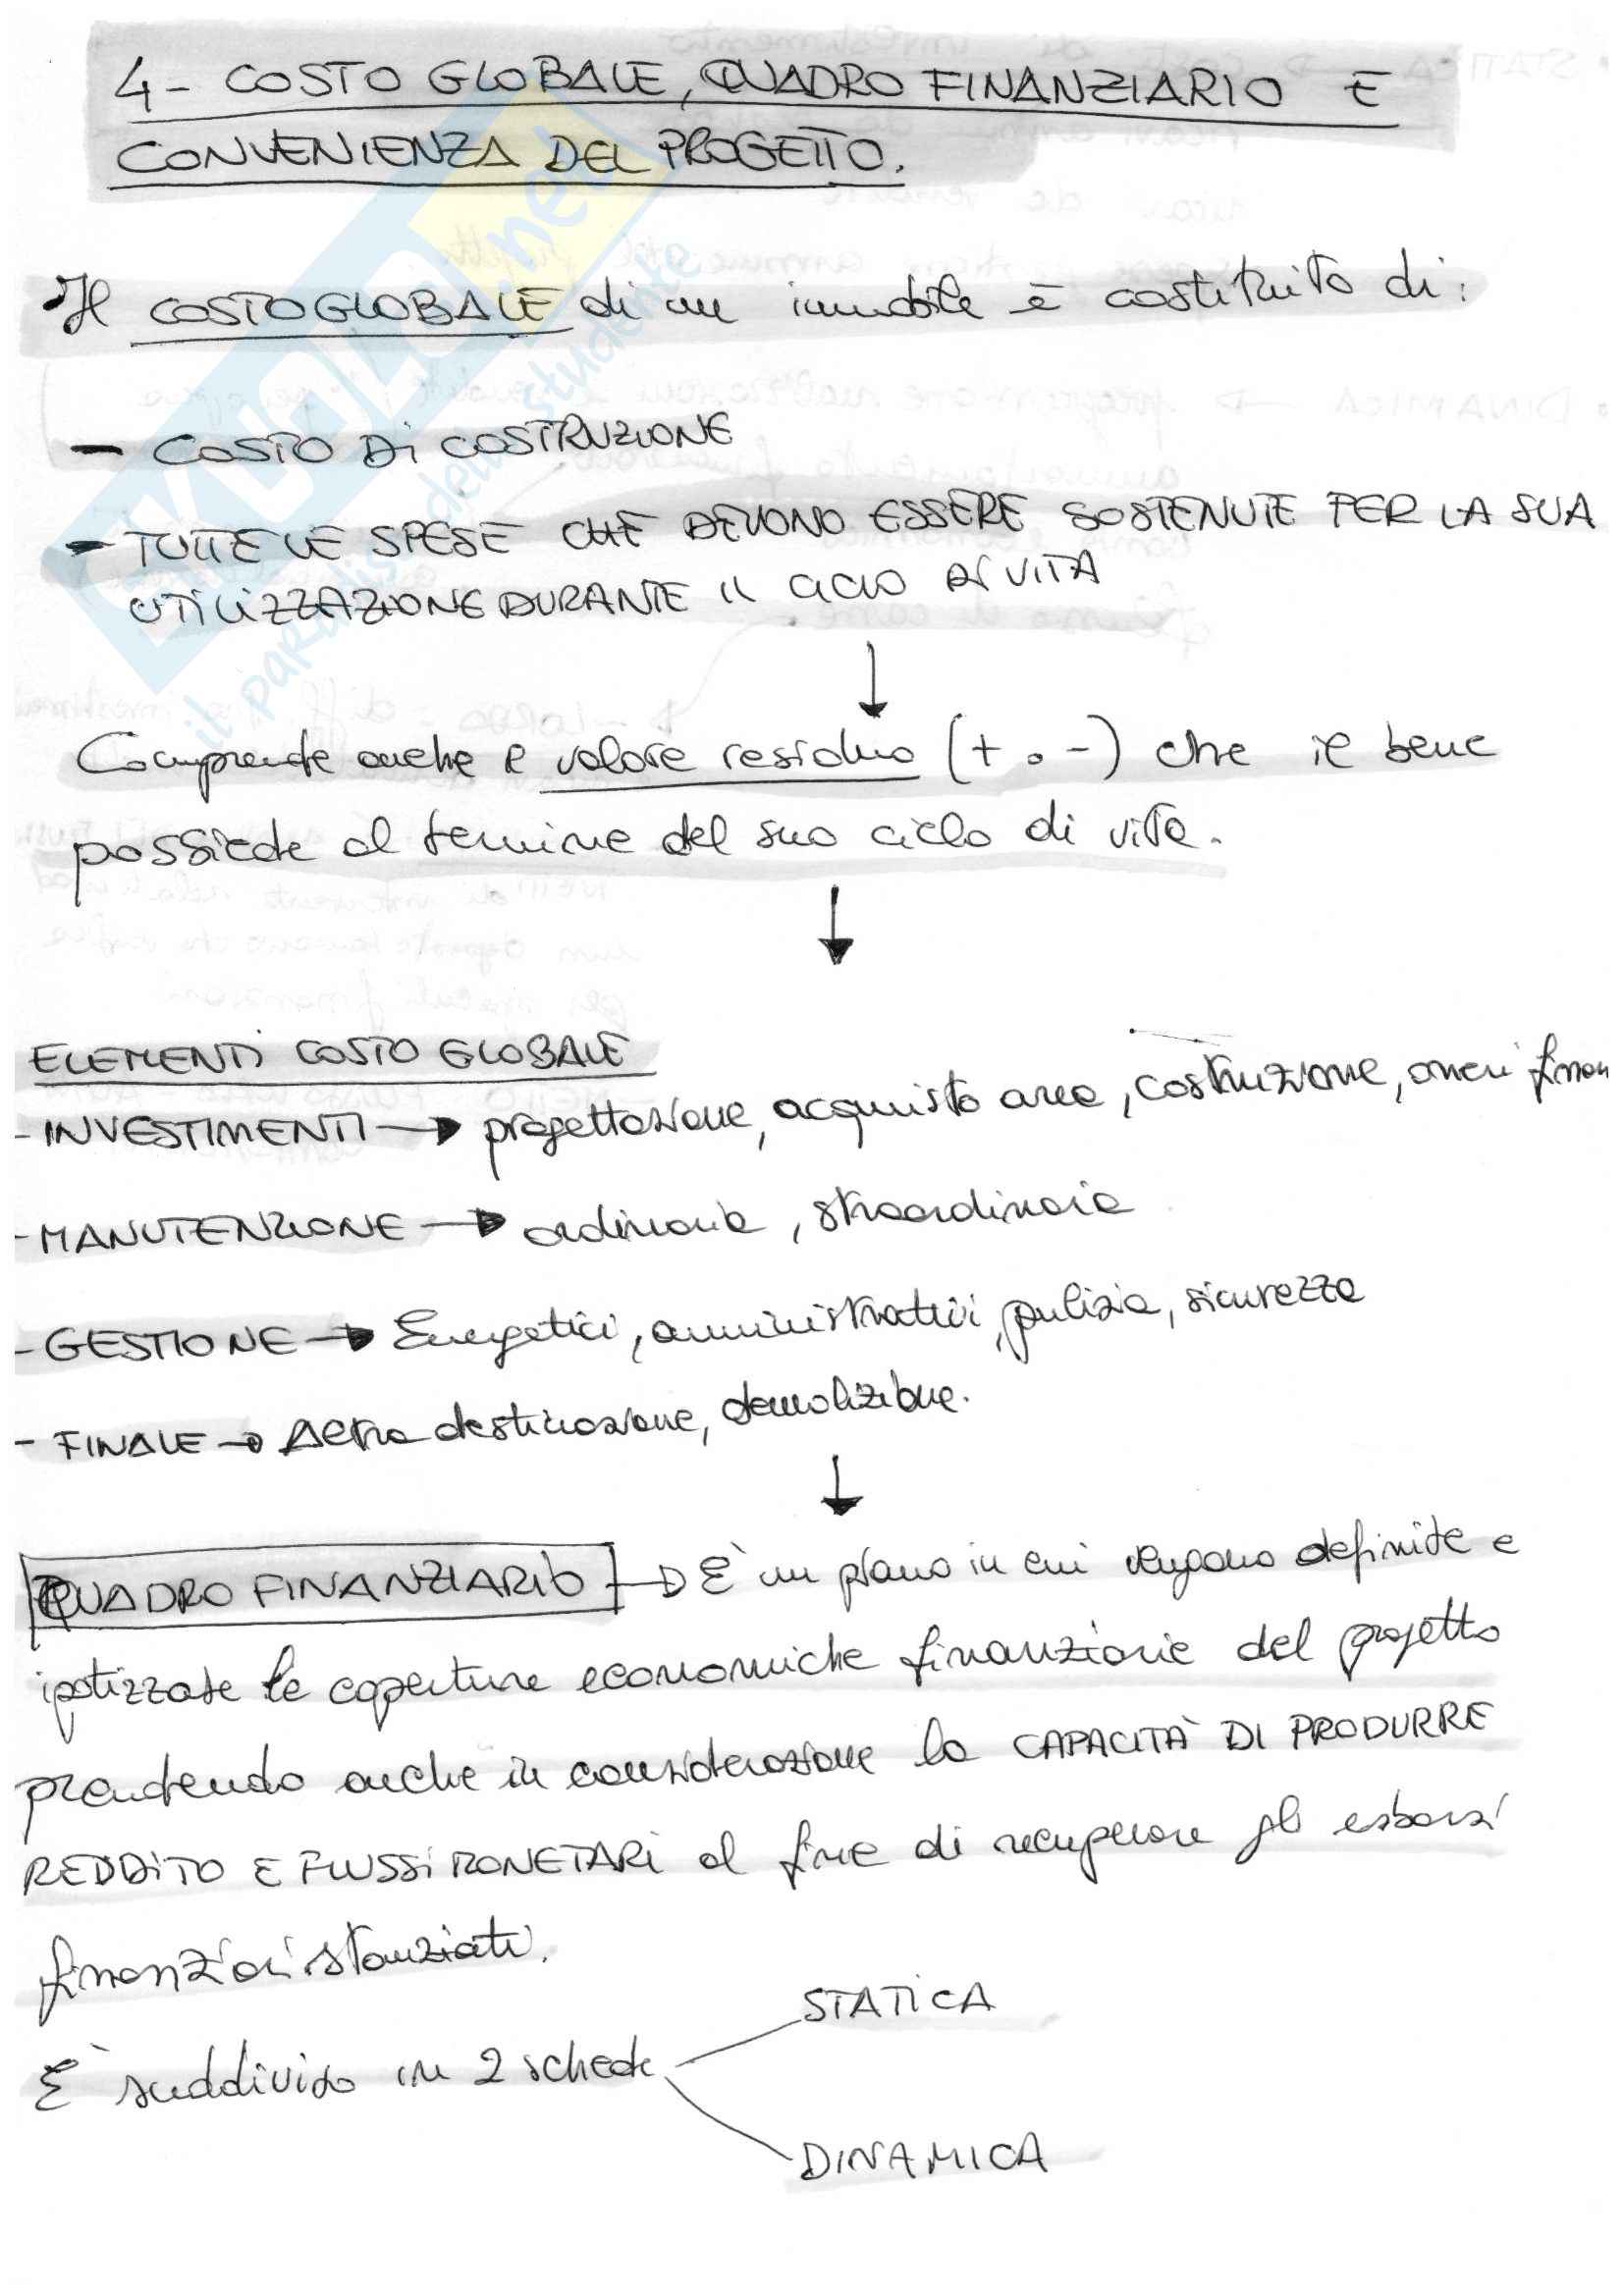 4 - COSTO GLOBALE, QUADRO FINANZIARIO E
CONVENIENZA DEL PROGETTO.
Il COSTO GLOBALE di un immobile è costituito di:
- COSTO Di COSTRUZIONE
- TUTTE LE SPESE CHE DEVONO ESSERE SOSTENUTE PER LA SUA
UTILIZZAZIONE DURANTE IL CICLO DI VITA
Comprende anche il valore residuo (+ o -) che il bene
possiede al termine del suo ciclo di vita.
ELEMENTI COSTO GLOBALE
- INVESTIMENTI → progettazione, acquisto area, costruzione, oneri finan
- MANUTENZIONE → ordinaria, straordinaria
- GESTIONE → Energetici, amministrativi, pulizia, sicurezza
- FINALE → Altra destinazione, demolizione.
QUADRO FINANZIARIO → È un piano in cui vengono definite e
ipotizzate le coperture economiche finanziarie del progetto
prendendo anche in considerazione la CAPACITÀ DI PRODURRE
REDDITO E FLUSSI MONETARI al fine di recuperare gli esborsi
finanziari stanziati.
È suddiviso in 2 schede
STATICA
DINAMICA
SKUOLA.net
il paradiso dello studente